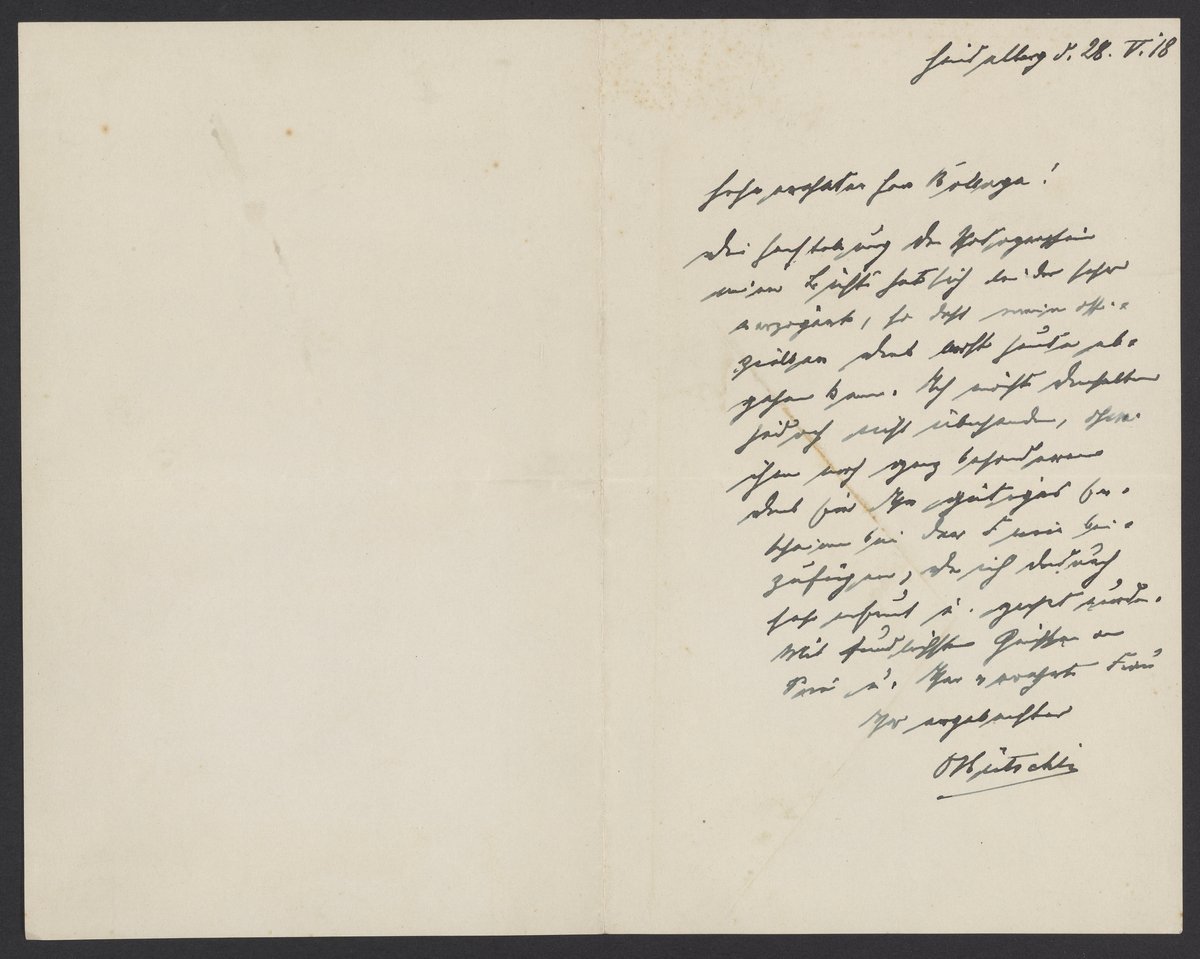 Heidelberg d. 28. V. 18
Sehr verehrter Herr Kollege!
Die Herstellung der Photographien
meiner Büste hat sich leider sehr
verzögert, so daß mein offi-
zieller Dank erst heute ab-
gehen kann. Ich möchte denselben
jedoch nicht übersenden, ohne
ihm noch ganz besonderen
Dank für Ihr gütiges Er-
scheinen bei der Feier bei-
zufügen, da ich dadurch
sehr erfreut u. geehrt wurde.
Mit freundlichsten Grüßen an
Sie u. Ihre verehrte Frau
Ihr ergebenster
O Bütschli